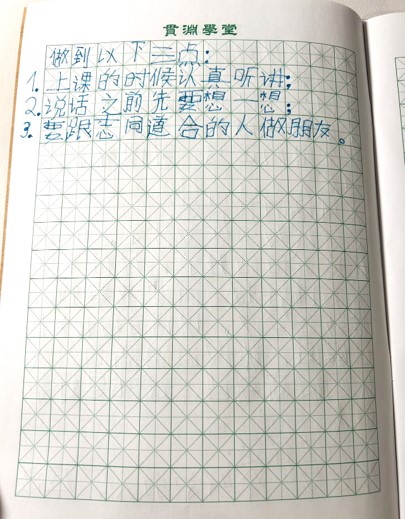 貫淵學堂
做到以下三点:
1.上课的时候认真听讲;
2.说话之前先要想一想;
3.要跟志同道合的人做朋友。